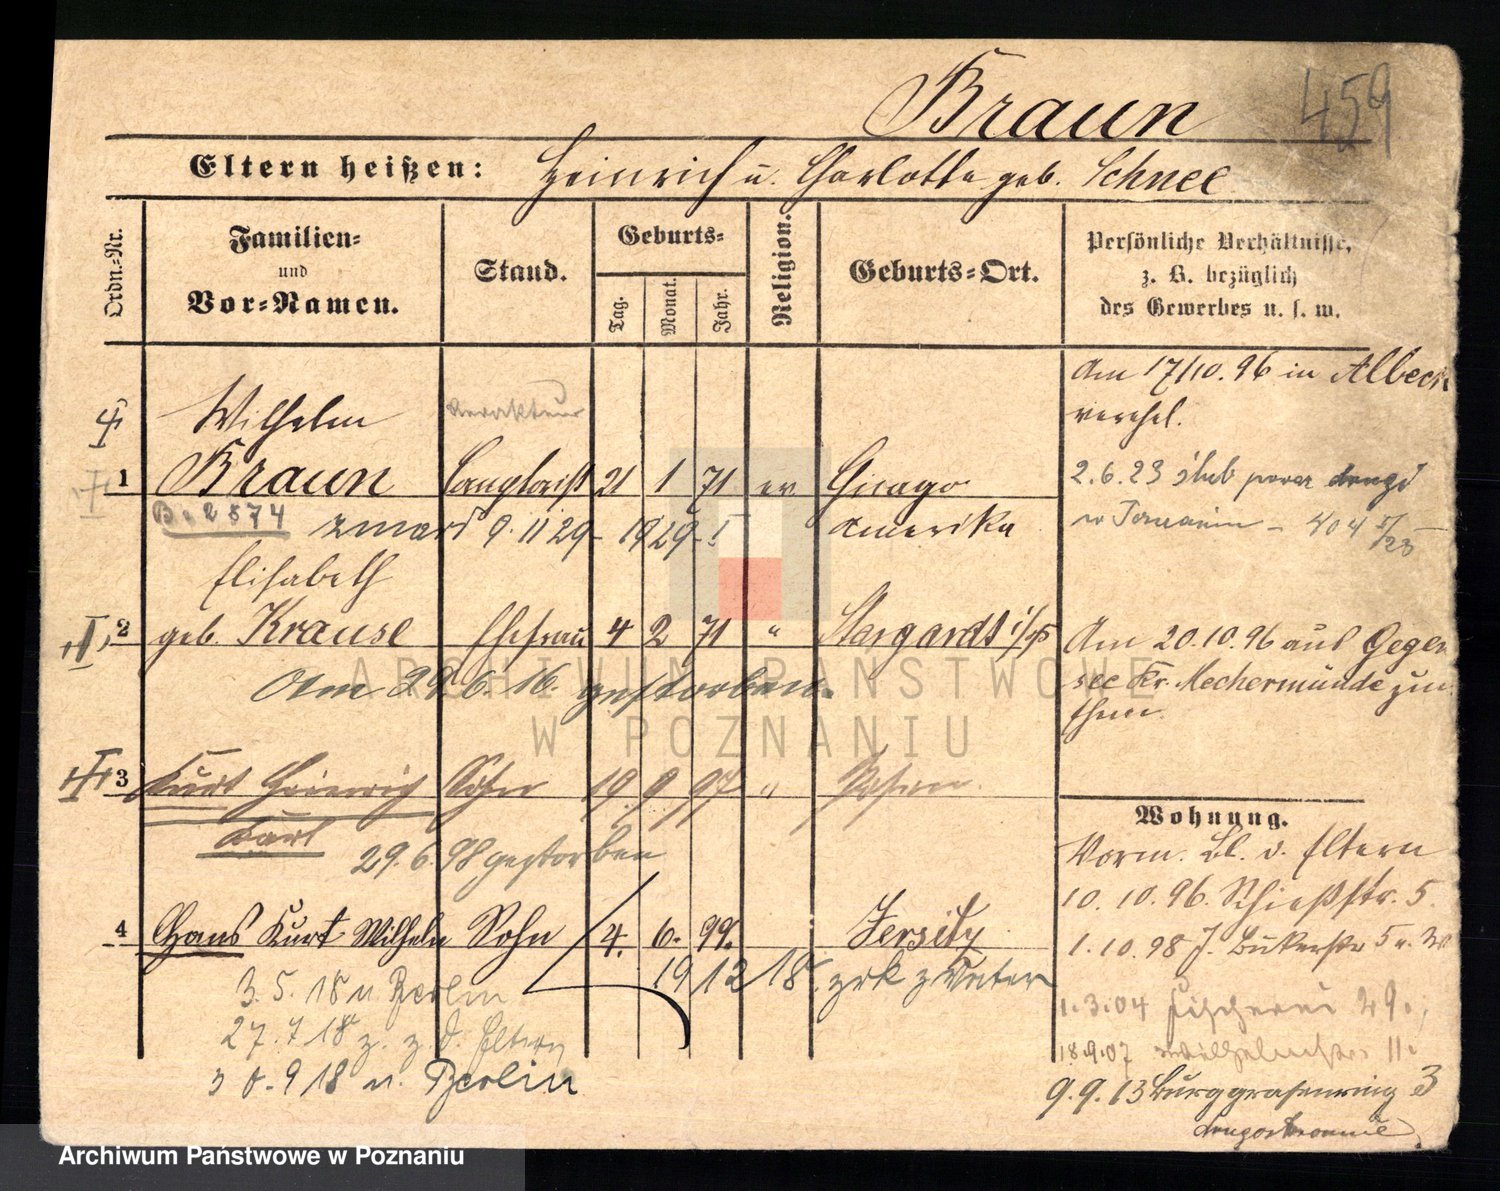 Braun 459
Eltern heißen: Heinrich u. Charlotte geb. Schnee
Ordn.-Nr.
Familien-
und
Vor-Namen.
Stand.
Geburts-
Tag.
Monat.
Jahr.
Religion.
Geburts-Ort.
Persönliche Verhältnisse,
z. B. bezüglich
des Gewerbes u. s. w.
Wilhelm
1 Braun 21 1 71 ev Chicago
B. 2874 zmarł 9.11.29 - 1929 - I Amerika
Am 17/10.96 in Albeck
verehel.
2.6.23 ślub
w Poznaniu - 404 5/23
Elisabeth
2 geb. Krause Ehefrau 4 2 71 " Stargardt i/P
Am 22.6.16. gestorben.
Am 20.10.96 aus Gegen
see Kr. Uechermünde zum
Ehem.
3 Kurt Heinrich Sohn 19 9 97 " Posen
Karl
29.6.98 gestorben
4 Hans Kurt Wilhelm Sohn 4. 6. 99. Jersitz
3.5.18 n. Berlin 19/12 18.
27.7.18 z. d. Eltern
30.9 18 n. Berlin
Wohnung.
Vorm. Bl. d. Eltern
10.10.96. Schießstr. 5.
1.10.98 J. Bukerstr 5
1.3.04 Fischerei 29.
18.9.07 11.
9.9.13 Burggrafenring 3
ARCHIWUM PAŃSTWOWE
W POZNANIU
Archiwum Państwowe w Poznaniu